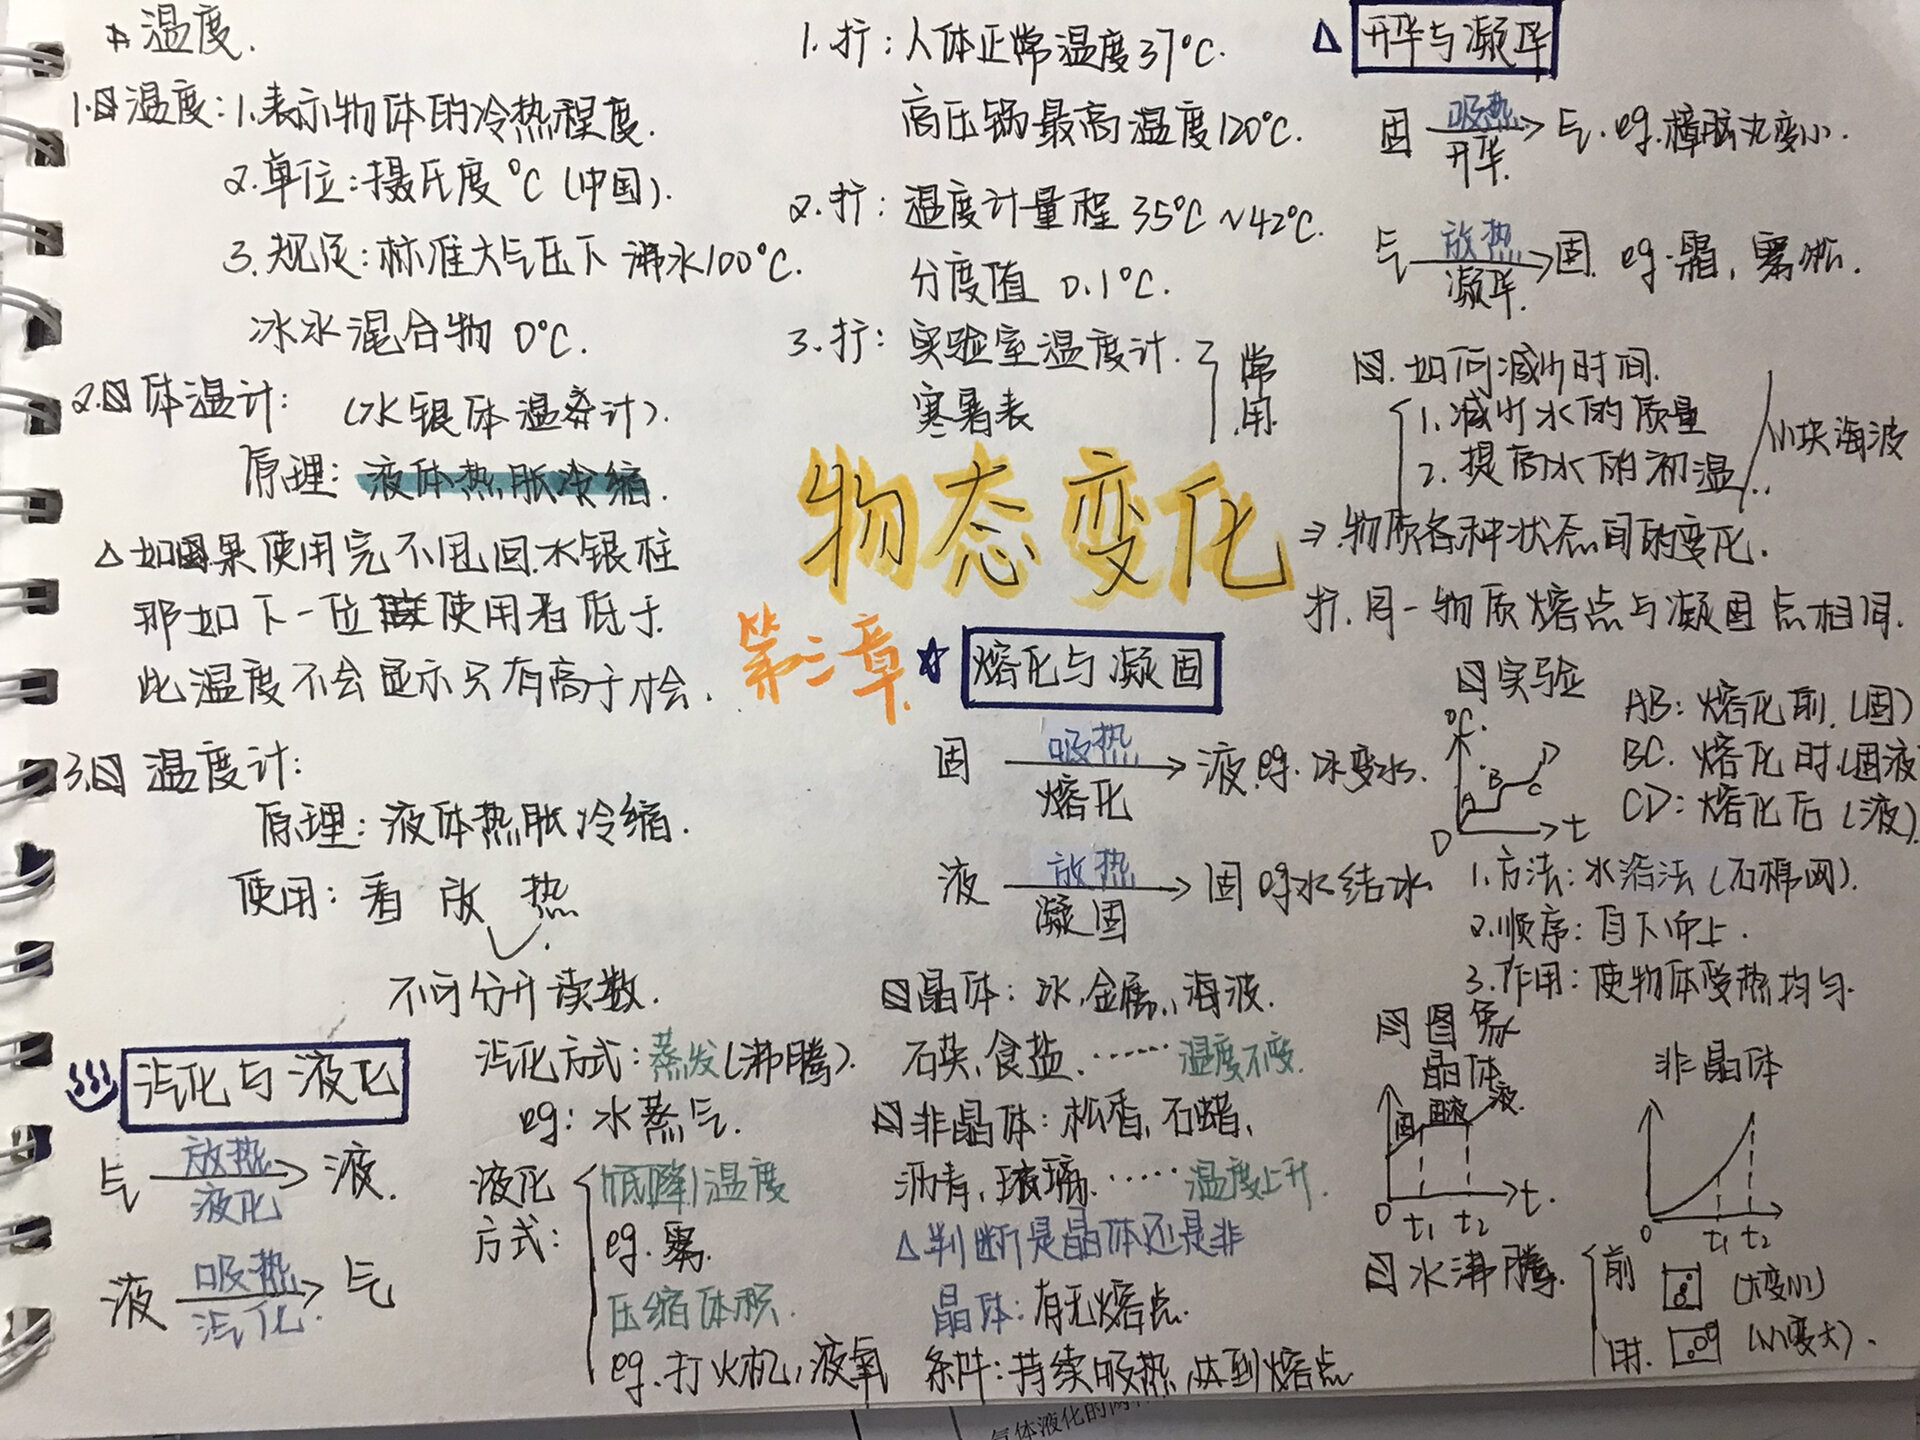 温度.
1. 温度: 1.表示物体的冷热程度.
2.单位:摄氏度 ℃ (中国).
3.规定:标准大气压下 沸水100℃.
冰水混合物 0℃.
2. 体温计: (水银体温计).
原理: 液体热胀冷缩.
△如果使用完不甩回水银柱
那如下一位使用者低于
此温度不会显示只有高于才会.
3. 温度计:
原理: 液体热胀冷缩.
使用: 看 放 热
不可分开读数.
1.扩: 人体正常温度37℃.
高压锅最高温度120℃.
2.扩: 温度计量程 35℃~42℃.
分度值 0.1℃.
3.扩: 实验室温度计.
寒暑表
常用.
物态变化
第三章.
⇒物质各种状态间的变化.
☆ 熔化与凝固
固 吸热 熔化 → 液. eg. 冰变水.
液 放热 凝固 → 固 eg水结冰
晶体: 冰, 金属, 海波.
石英, 食盐. ⋯⋯ 温度不变.
非晶体: 松香, 石蜡,
沥青, 玻璃. ⋯⋯ 温度上升.
△判断是晶体还是非
晶体: 有无熔点.
条件: 持续吸热, 达到熔点
扩. 同一物质熔点与凝固点相同.
实验
℃
A B C D
0 t
AB: 熔化前. (固)
BC. 熔化时. (固液
CD: 熔化后 (液).
1.方法: 水浴法 (石棉网).
2.顺序: 自下向上.
3.作用: 使物体受热均匀.
图象
晶体
固 固液 液.
0 t1 t2 t.
非晶体
0 t1 t2
水沸腾.
前 (大变小)
时. (小变大).
汽化与液化
气 放热 液化 → 液.
液 吸热 汽化. → 气
汽化方式: 蒸发 (沸腾).
eg: 水蒸气.
液化方式:
降低温度
eg. 雾.
压缩体积.
eg. 打火机, 液氧
△ 升华与凝华
固 吸热 升华. → 气. eg. 樟脑丸变小.
气 放热 凝华. → 固. eg. 霜, 雾凇.
如何减少时间.
1. 减少水的质量
2. 提高水的初温..
小块海波
气体液化的两